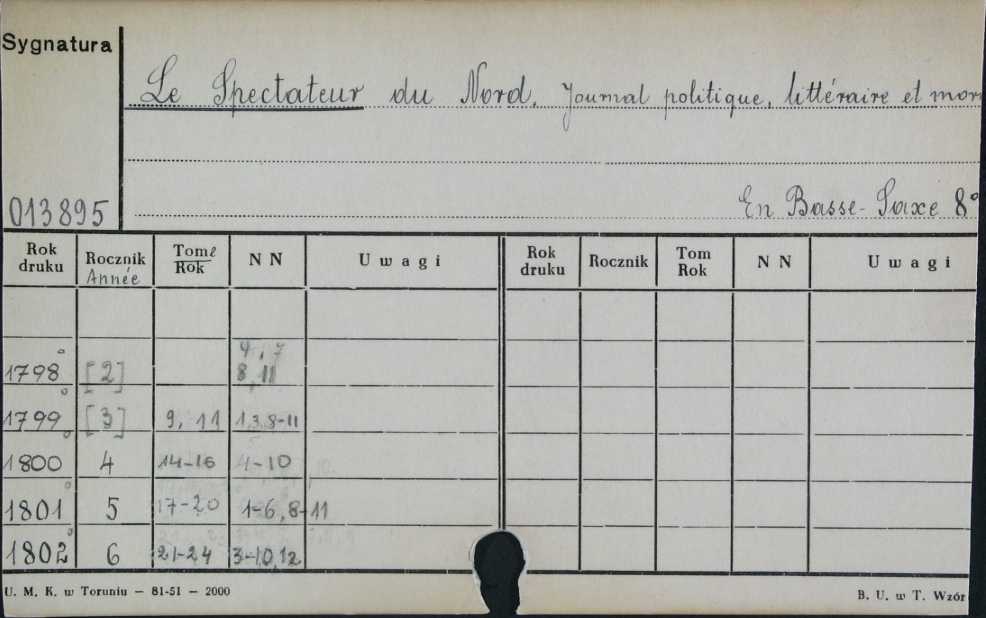 Sygnatura
Le Spectateur du Nord. Journal politique, littéraire et mor
En Basse-Saxe 8°
013895
Rok druku Rocznik Année Tome Rok N N Uwagi Rok druku Rocznik Tom Rok N N Uwagi
4, 7
1798 [2] 8, 11
1799 [3] 9, 11 1,3,8-11
1800 4 14-16 4-10
1801 5 17-20 1-6, 8-11
1802 6 21-24 3-10,12
U. M. K. w Toruniu — 81-51 — 2000
B. U. w T. Wzór